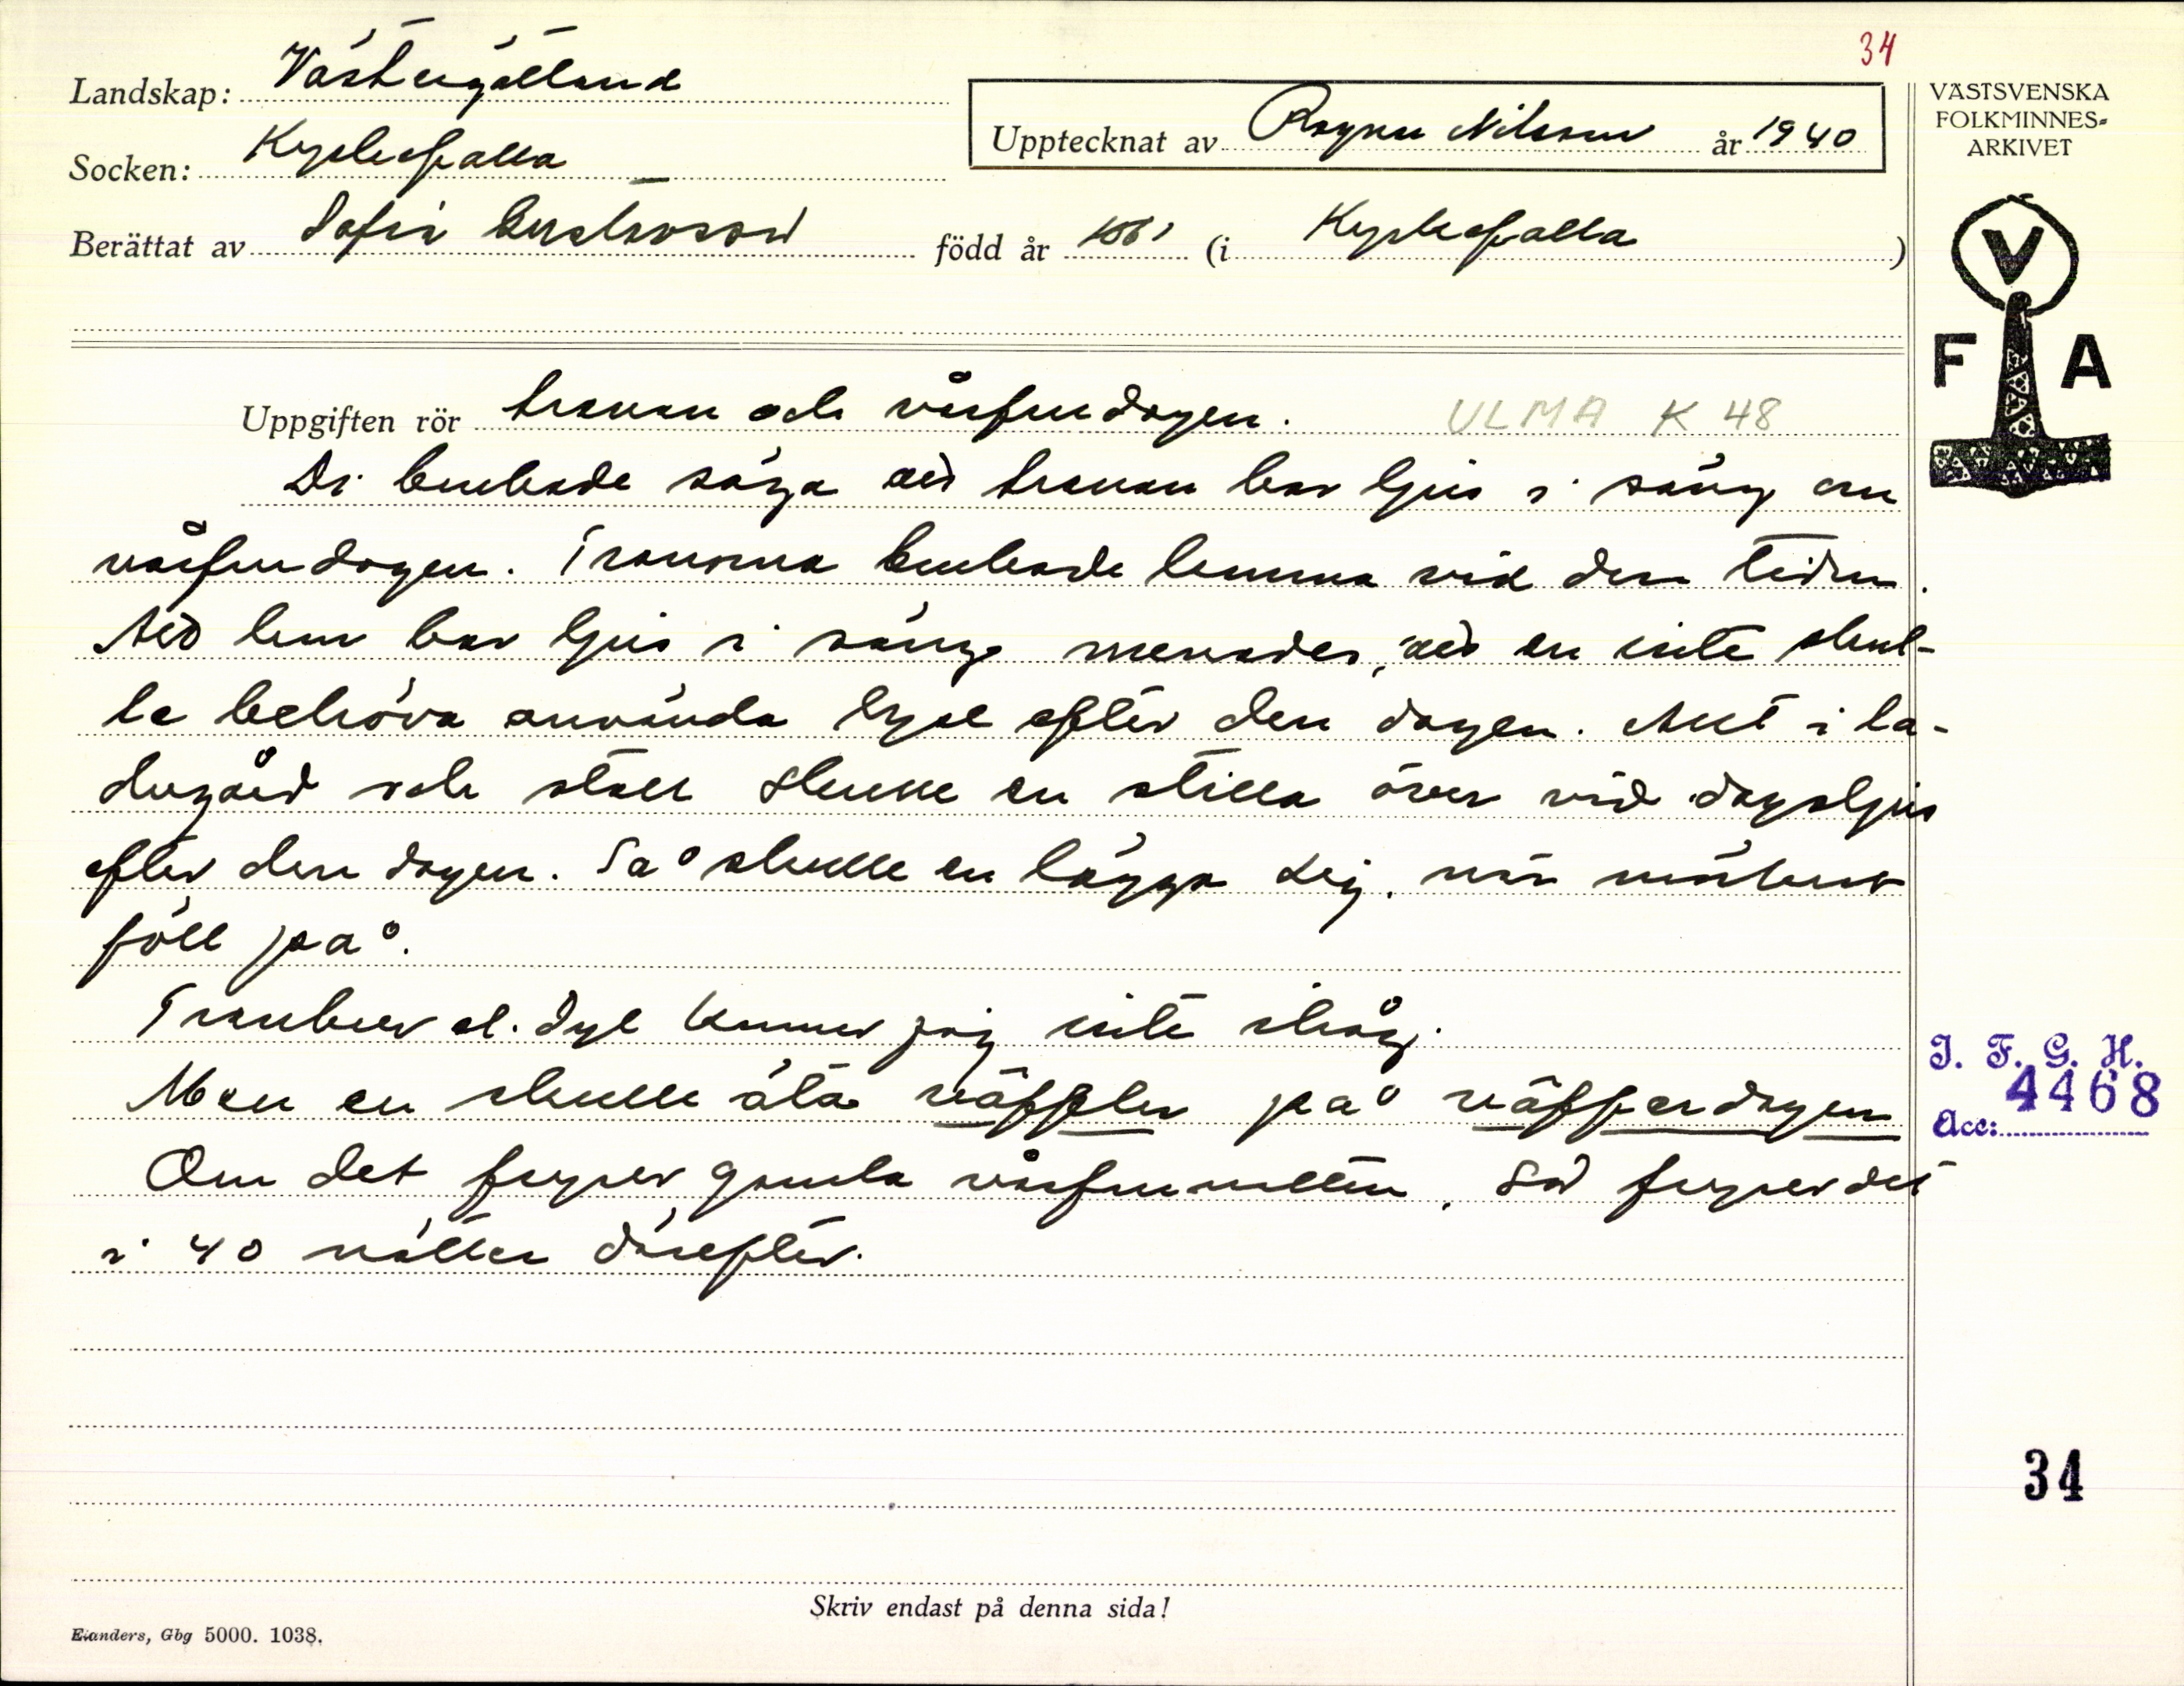 34
Landskap: Västergötland
Upptecknat av Ragnar Nilsson år 1940
Socken: Kyrkefalla
Berättat av Sofia Gustavsson född år 1861 (i Kyrkefalla)
VÄSTSVENSKA
FOLKMINNES-
ARKIVET
V
F A
Uppgiften rör tranan och vårfrudagen. ULMA K 48
Di brukade säga att tranan bar ljus i säng om
vårfrudagen. Tranorna brukade komma vid den tiden.
Att hon bar ljus i säng menades, att en inte skul-
le behöva använda lyse efter den dagen. Allt i la-
dugård och stall skulle en stilla över vid dagsljus
efter den dagen. Så skulle en lägga sej, när mörkret
föll på.
Tranbrev el. dyl kommer jag inte ihåg.
Men en skulle äta väffler på väfferdagen
Om det fryser gamla vårfrunatten, så fryser det
i 40 nätter därefter.
I. F. G. H.
4468
Acc:
34
Skriv endast på denna sida!
Elanders, Gbg 5000. 1038.